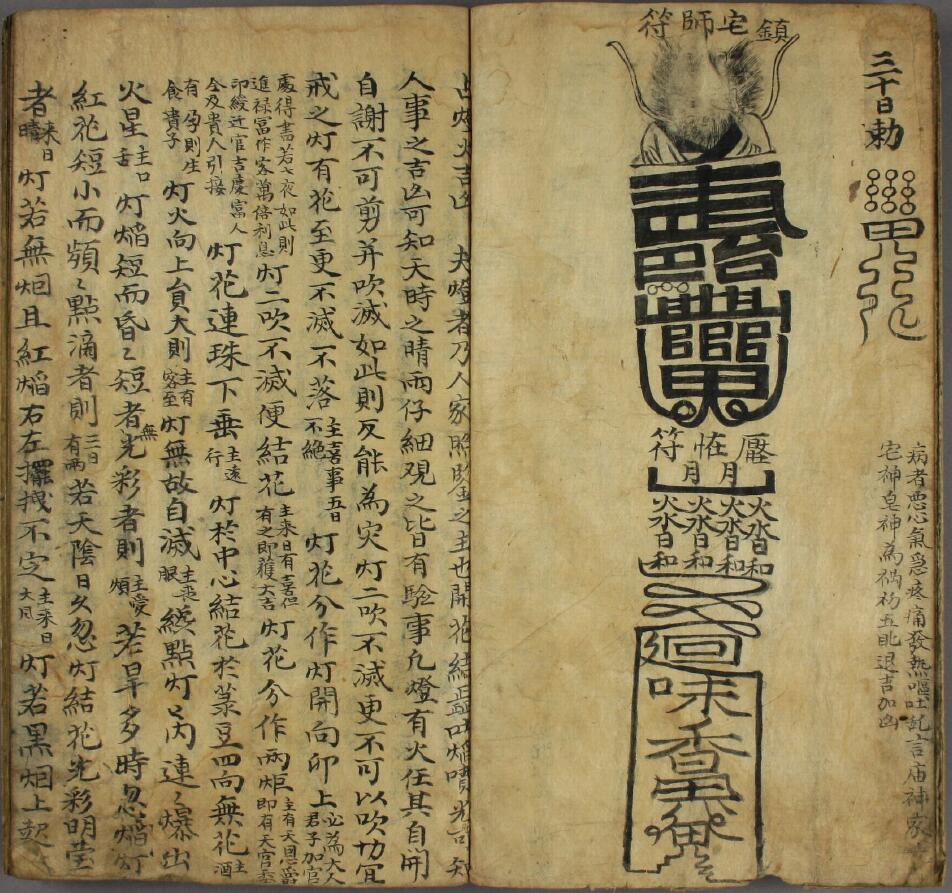 三十日勅
病者悪心氣急疼痛發熱嘔吐乱言庙神家
宅神皂神為禍礽五 退吉加凶
鎮宅師符
壓恠符
月月
火沓日和
火沓日和
火沓日和
火沓日和
迴
味香
占燈火吉凶 夫燈者乃人家照臨之主也開花結蕊吐焰噴光吉知
人事之吉凶可知天時之晴雨仔細观之皆有驗事凢燈有火任其自開
自謝不可剪并吹滅如此則反能為灾灯二吹不滅更不可以吹切宜
戒之灯有花至更不滅不落主喜事五日不絶灯花分作灯開向卯上必為大人君子加官
處得書若七夜如此則進禄冨作客萬倍利息灯二吹不滅便結花主来日有喜但有之即獲大吉灯花分作兩炬主有天恩爵即有天官
印綬近官吉慶富人全及貴人引接灯花連珠下垂主遠行灯於中心結花於菉豆四向無花主酒
食有孕則生貴子灯火向上員大則主有客至灯無故自滅主喪服緩點灯芯内連々爆出
火星主口舌灯焰短而昏々短者無光彩者則主憂煩若旱多時忽焰灯
紅花短小而頻々點滴者則三日有雨若天陰日久忽灯結花光彩明莹
者来日晴灯若無烟且紅焰右左擺拽不定主来日大風灯若黑烟上起